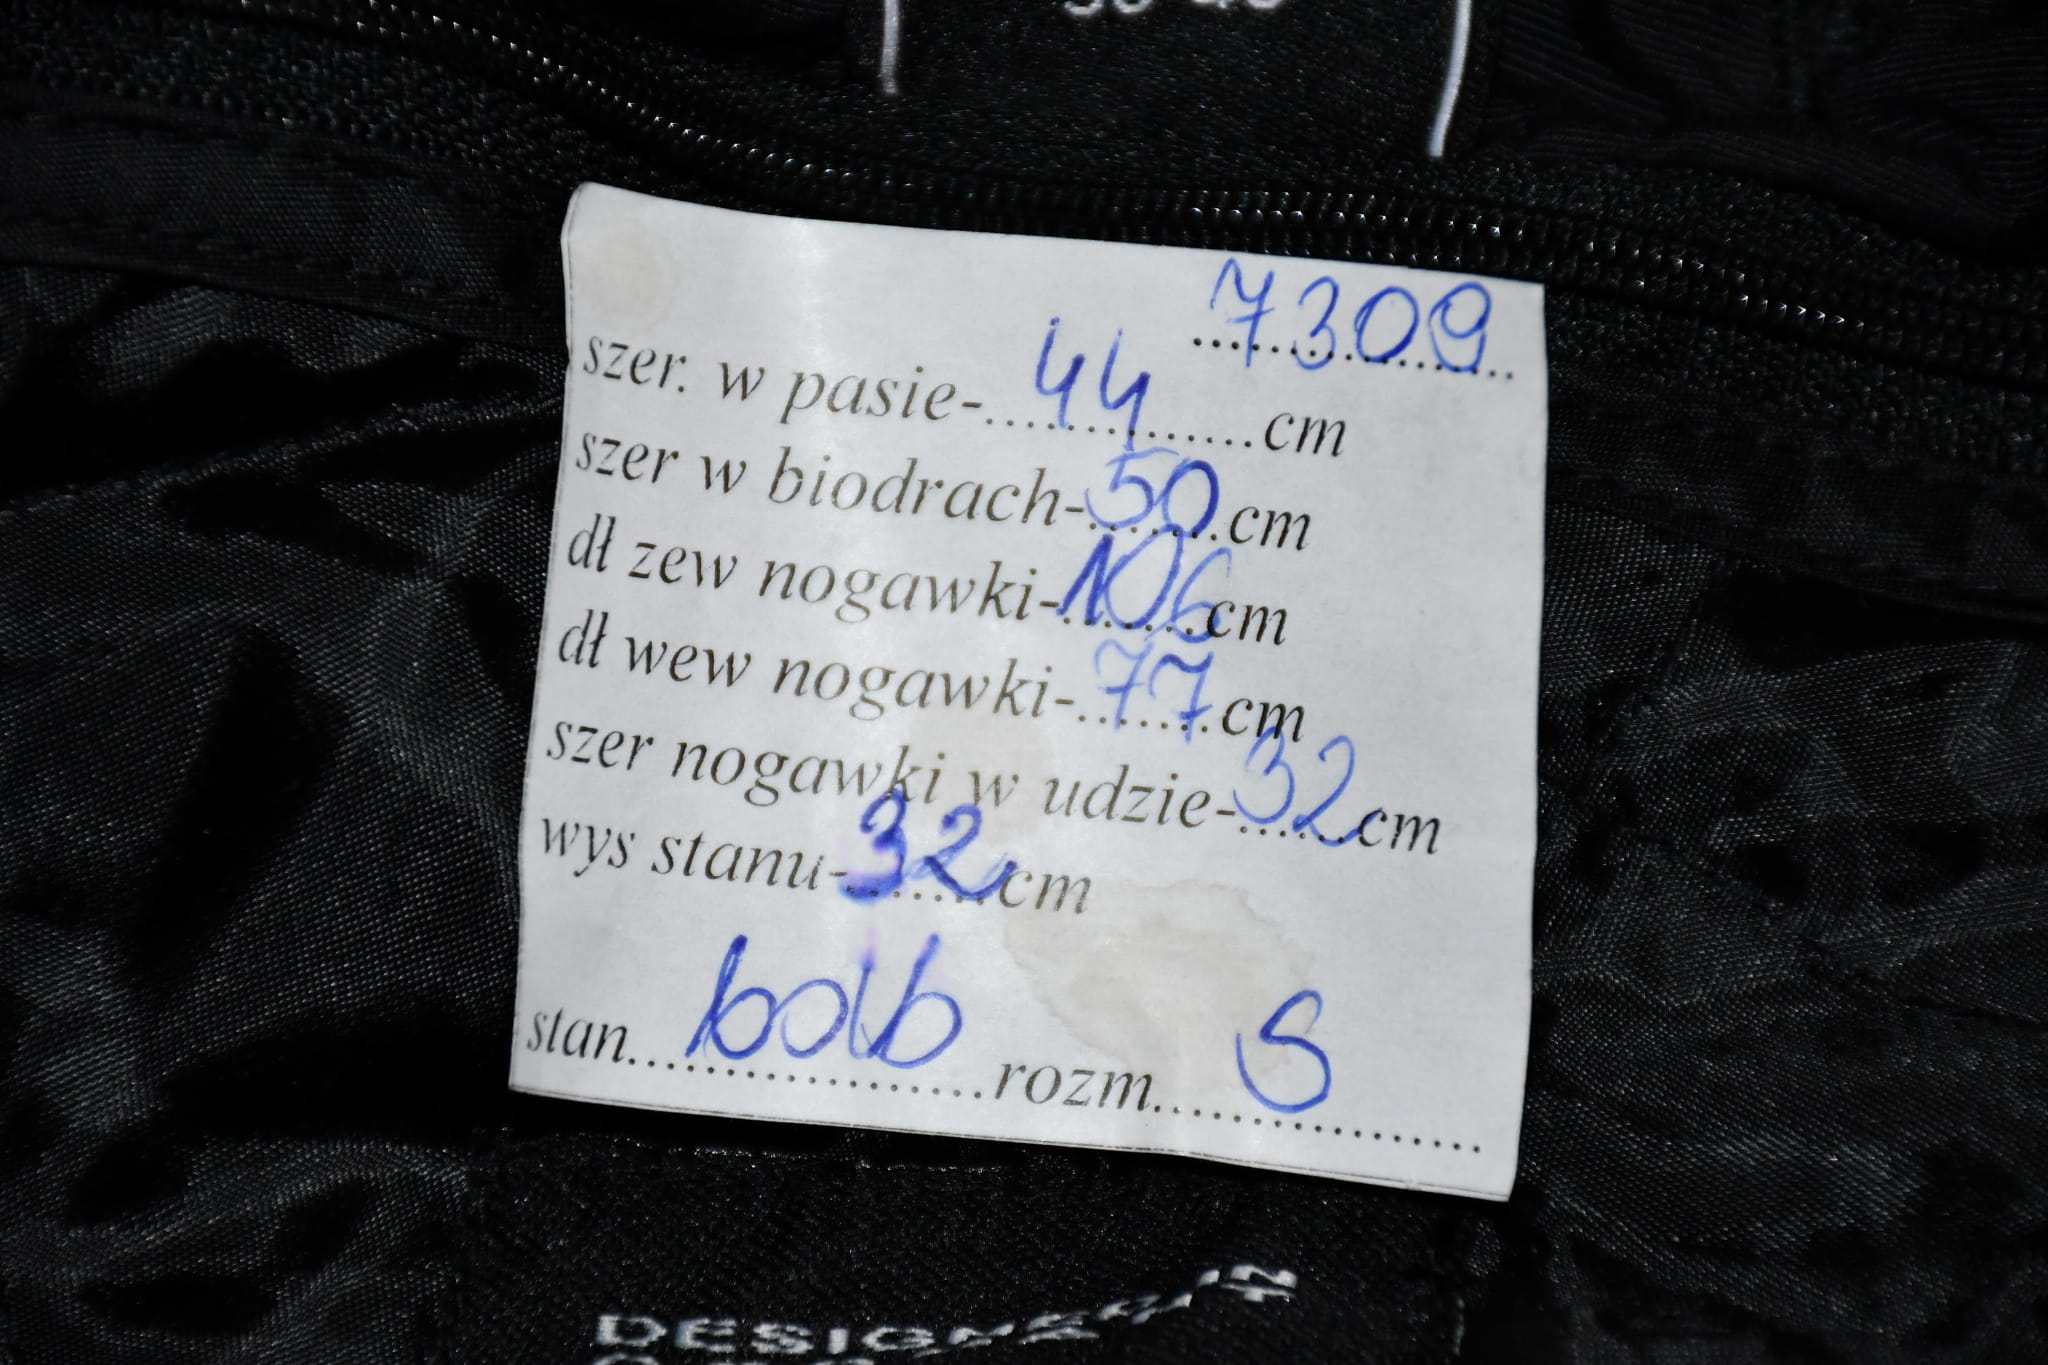 7309
szer. w pasie-....44....cm
szer w biodrach-50cm
dł zew nogawki-106cm
dł wew nogawki-77cm
szer nogawki w udzie-32cm
wys stanu-32cm
stan...bdb...rozm...S...